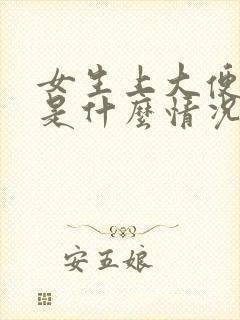 女生上大便
是什麼情況
安五娘